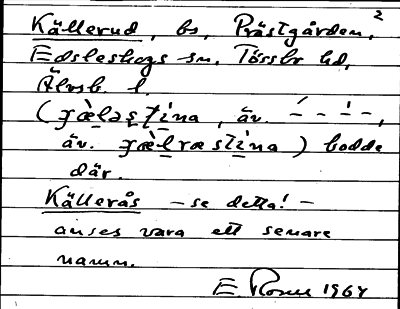 Källerud, bs, Prästgården, 2
Edsleskogs sn. Tössbo hd,
Älvsb. l.
(ɟæ̀ləstina, äv. – – ́ – –,
äv. ɟæ̀lrəstina) bodde
där.
Källerås – se detta! –
anses vara ett senare
namn.
E. 1964